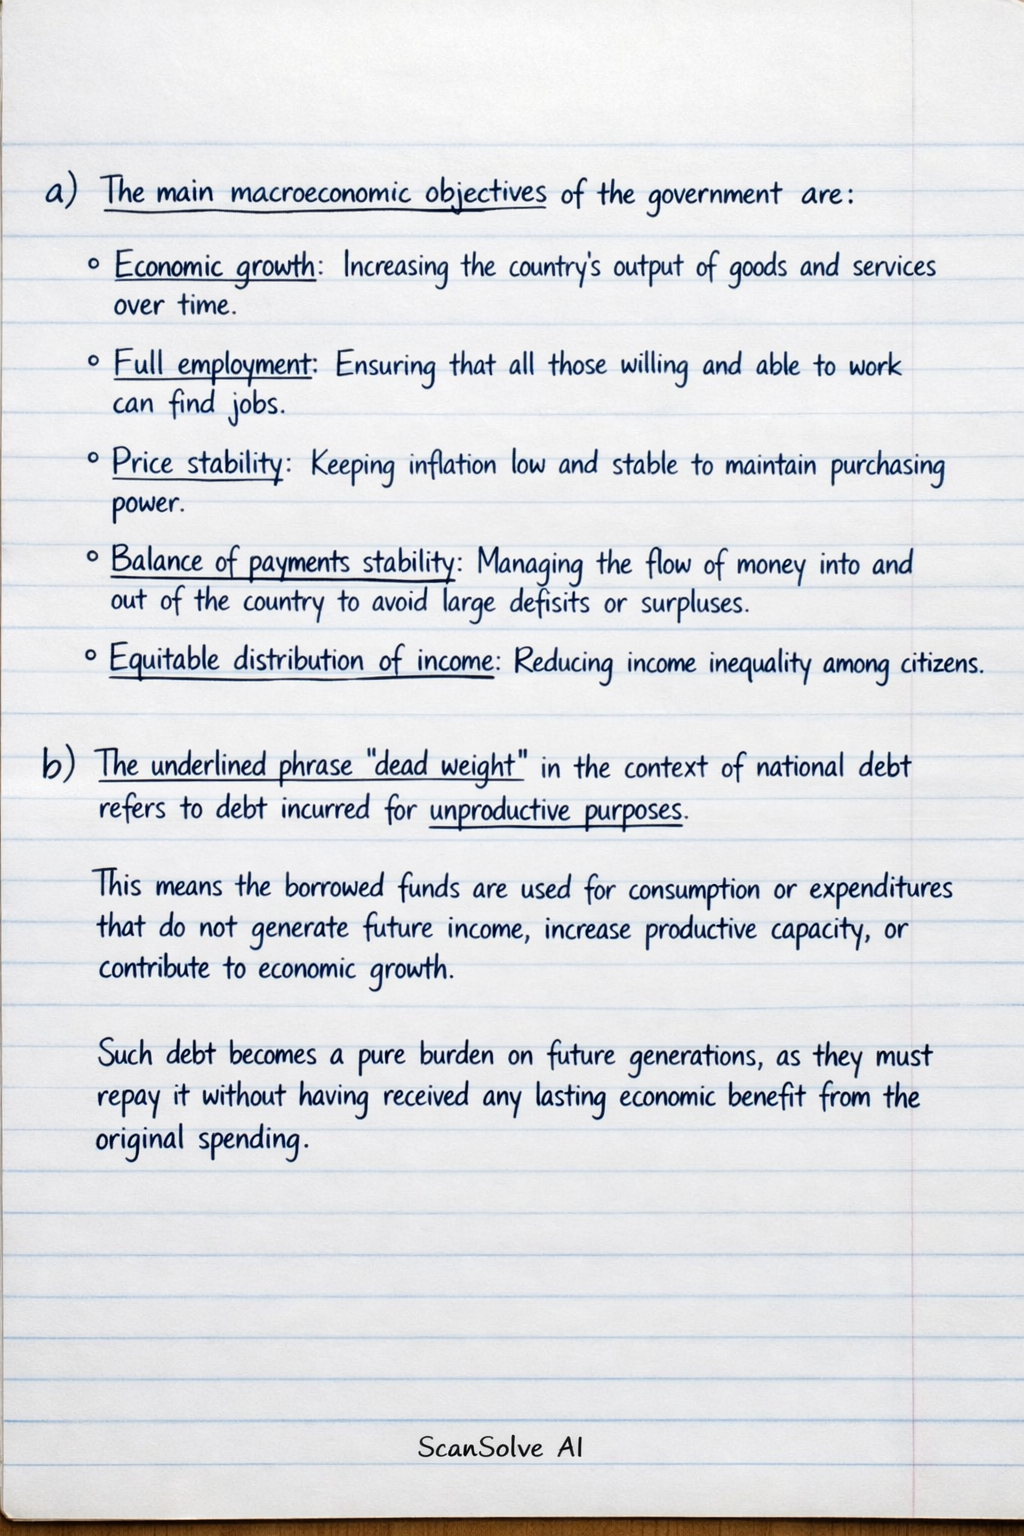 a) The main macroeconomic objectives of the government are:
◦ Economic growth: Increasing the country's output of goods and services
over time.
◦ Full employment: Ensuring that all those willing and able to work
can find jobs.
◦ Price stability: Keeping inflation low and stable to maintain purchasing
power.
◦ Balance of payments stability: Managing the flow of money into and
out of the country to avoid large defisits or surpluses.
◦ Equitable distribution of income: Reducing income inequality among citizens.
b) The underlined phrase "dead weight" in the context of national debt
refers to debt incurred for unproductive purposes.
This means the borrowed funds are used for consumption or expenditures
that do not generate future income, increase productive capacity, or
contribute to economic growth.
Such debt becomes a pure burden on future generations, as they must
repay it without having received any lasting economic benefit from the
original spending.
ScanSolve AI